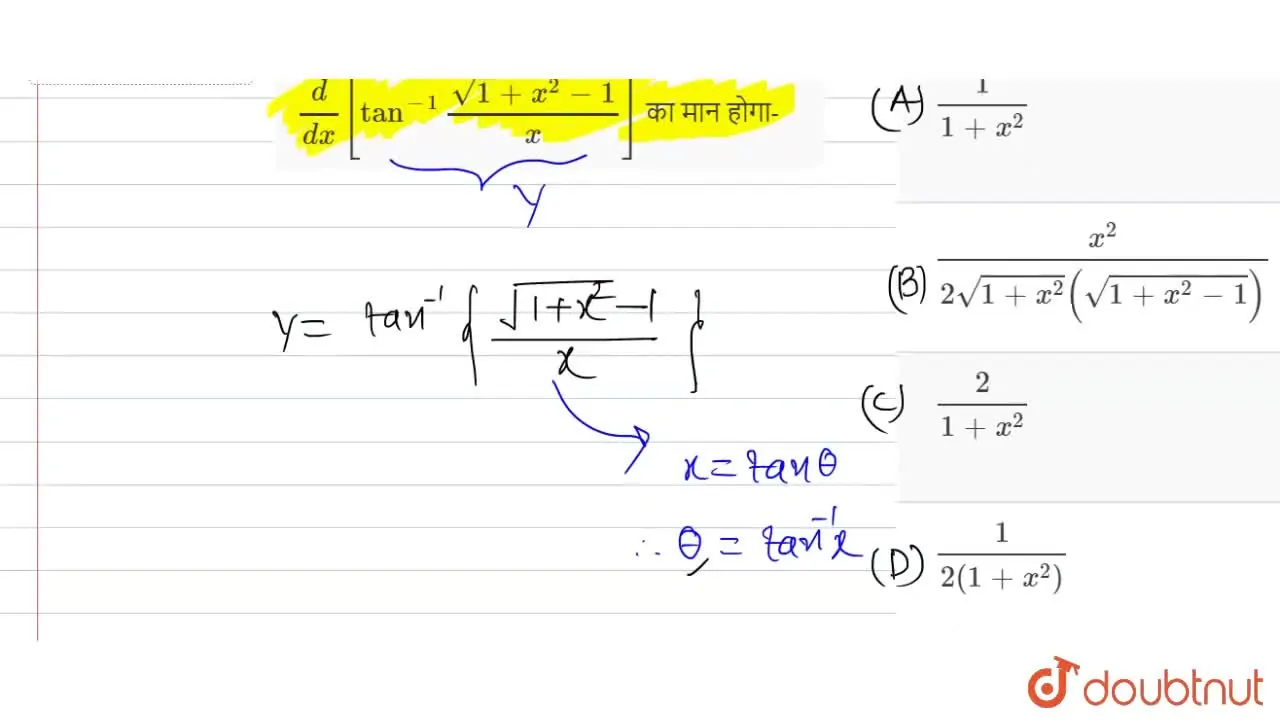 d/dx [tan⁻¹ (√1 + x² − 1)/x] का मान होगा-
Y
y = tan⁻¹ { (√1+x² −1)/x }
x = tanθ
∴ θ = tan⁻¹x
(A) 1/(1 + x²)
(B) x²/(2√1 + x²(√1 + x² − 1))
(C) 2/(1 + x²)
(D) 1/(2(1 + x²))
doubtnut